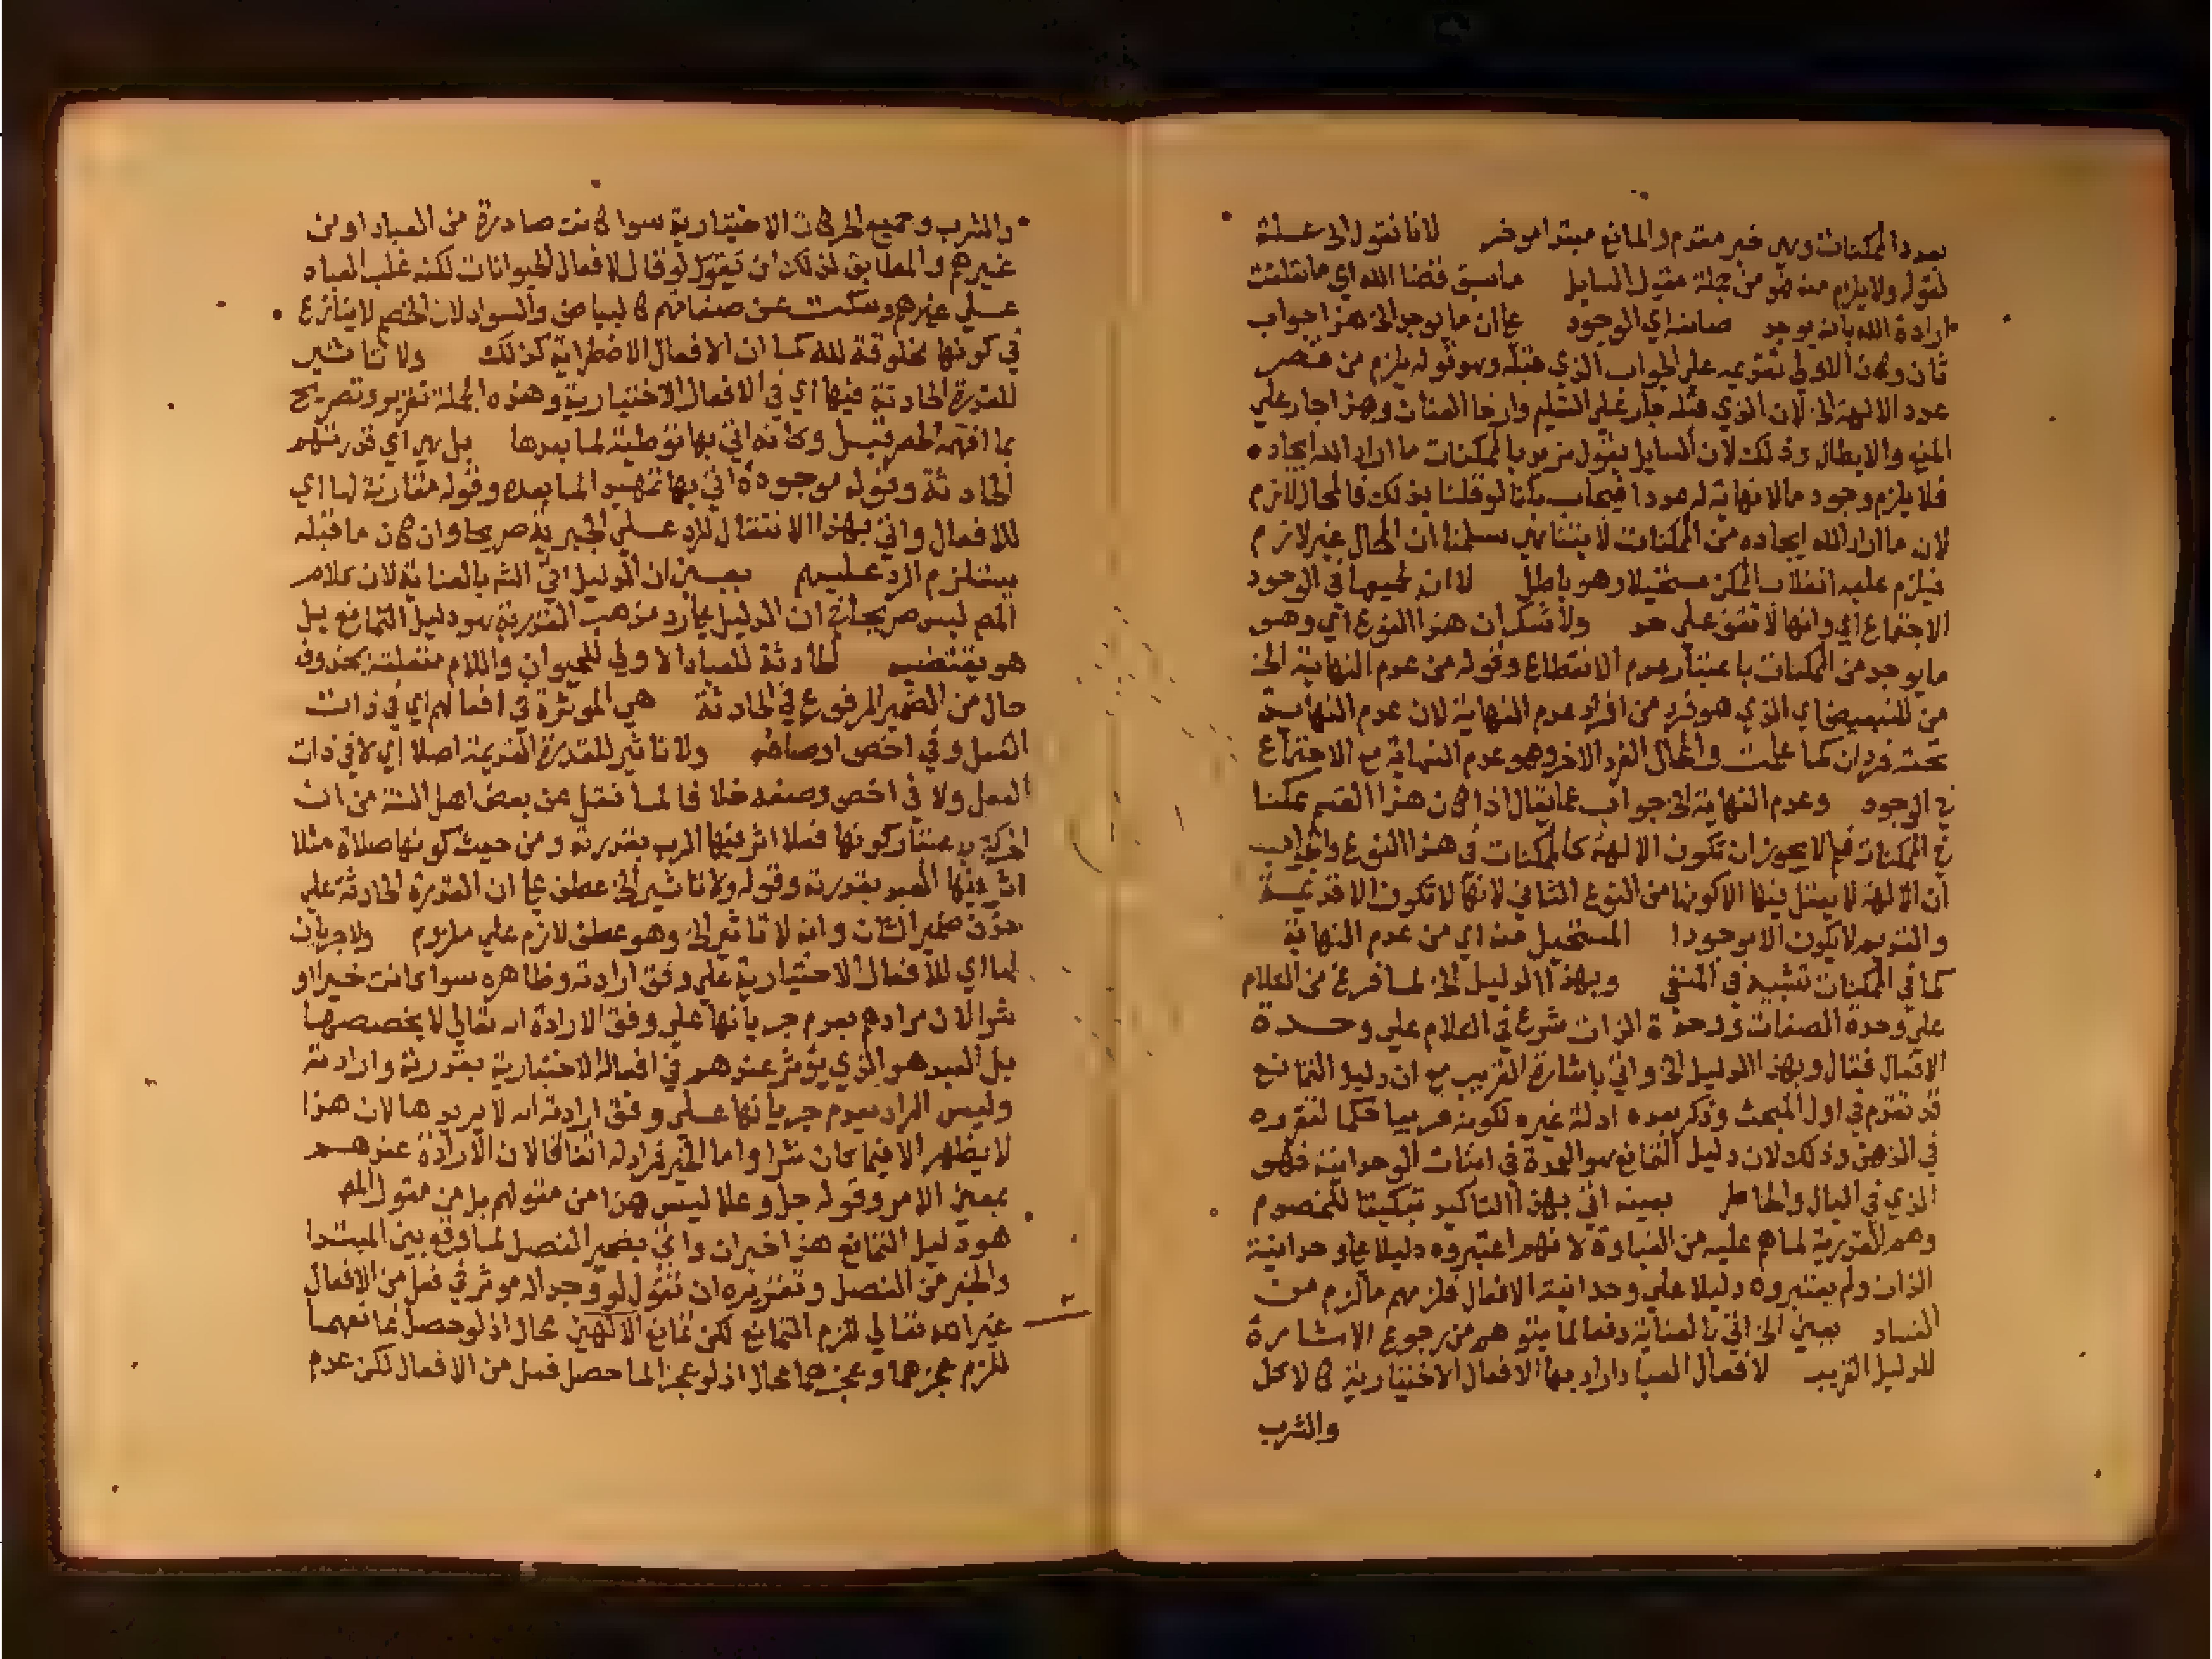 بعدد الممكنات وهي خبر مقدم والمانع مبتدا موخر لانا نقول الخ علة
لقوله ولا يلزم منه فهو من جملة مقول السايل ما سبق قضا الله اي ما تعلقت
ارادة الله بانه يوجد اي الوجود ان ما يوجد الخ هذا جواب
ثان وكان الاولى تقديمه على الجواب الذي قبله وهو قوله يلزم من
عدد الالهة الخ لان الذي قبله جار على التسليم وارخا العنان وهذا جار علي
المنع والابطال وذلك لان السايل يقول نريد بالممكنات ما اراد الله ايجاده
فلا يلزم وجود ما لا نهاية له عددا فيجاب بانا لو قلنا بذلك فالمحال لازم
لان ما اراد الله ايجاده من الممكنات لا يتناهي سلمنا ان المحال غير لازم
فيلزم عليه انقلاب الممكن مستحيلا وهو باطل لا ان في الوجود
الاجتماع اي وانها لا تقف علي حد ولا شك ان هذا النوع اي وهو
ما يوجد من الممكنات باعتبار عدم الانقطاع وقوله من عدم النهاية الخ
من للتبعيض اي الذي هو فرد من افراد عدم النهاية لان عدم النهاية
تحته فردان كما علمت والمحال الفرد الاخر وهو عدم النهاية مع الاجتماع
في الوجود وعدم النهاية الخ جواب عما يقال اذا كان هذا القسم ممكنا
في الممكنات فلم لا يجوز ان تكون الالهة كالممكنات في هذا النوع والجواب
ان الالهة لا يعقل فيها الا كونها من النوع الثاني لانها لا تكون الا قديمة
والقديم لا يكون الا موجودا المستحيل منه اي من عدم النهاية
كما في الممكنات تشبيه في المنفي وبهذا الدليل الخ لما فرغ من الكلام
علي وحدة الصفات ووحدة الذات شرع في الكلام علي وحدة
الافعال فقال وبهذا الدليل الخ واتي باشارة القريب مع ان دليل التمانع
قد تقدم في اول المبحث وذكر بعده ادلة غيره لكونه قريبا حكما لتقرره
في الذهن وذلك لان دليل التمانع هو العمدة في اثبات الوحدانية فهو
الذي في البال والخاطر بعينه اتي بهذا التاكيد تبكيتا للخصوم
وهم القدرية لما هم عليه من الغباوة لانهم اعتبروه دليلا علي وحدانية
الذات ولم يعتبروه دليلا علي وحدانية الافعال فلزمهم ما لزم من
الفساد يعني الخ اتي بالعناية دفعا لما يتوهم من رجوع الاشارة
للدليل القريب لافعال العباد اراد بها الافعال الاختيارية كالاكل
والشرب
والشرب وجميع الحركات الاختيارية سوا كانت صادرة من العباد او من
غيرهم والمطابق لذلك ان يقول لو قال لافعال الحيوانات لكنه غلب العباد
علي غيرهم وسكت عن صفاتهم كالبياض والسواد لان الخصم لا ينازع
في كونها مخلوقة لله كما ان الافعال الاضطرارية كذلك ولا تاثير
للقدرة الحادثة فيها اي في الافعال الاختيارية وهذه الجملة تقرير وتصريح
بما افهمه الحصر قبل وكانه اتي بها توطية لما بعدها بل هي اي قدرتهم
الحادثة وقوله موجودة اتي بها تمهيدا لما بعده وقوله مقارنة لها اي
للافعال واتي بهذا الانتقال للرد علي الجبرية صريحا وان كان ما قبله
يستلزم الرد عليهم يعني ان الدليل اتي الش بالعناية لان كلام
المص ليس صريحا في ان الدليل علي رد مذهب القدرية هو دليل التمانع بل
هو يقتضيه الحادثة للعباد الاولي للحيوان واللام متعلقة بمحذوف
حال من الضمير المرفوع في الحادثة هي الموثرة في افعالهم اي في ذات
الفعل وفي اخص اوصافه ولا تاثير للقدرة القديمة اصلا اي لا في ذات
الفعل ولا في اخص وصفه خلافا لما نقل عن بعض اهل السنة من ان
الحركة باعتبار كونها فعلا اثر فيها الرب بقدرته ومن حيث كونها صلاة مثلا
اثر فيها العبد بقدرته وقوله ولا تاثير الخ عطف علي ان القدرة الحادثة علي
حذف ضمير الشان وانه لا تاثير الخ وهو عطف لازم علي ملزوم ولا جريان
لها اي للافعال الاختيارية علي وفق ارادته وظاهره سوا كانت خيرا او
شرا لان مرادهم بعدم جريانها علي وفق الارادة انه تعالي لا يخصصها
بل العبد هو الذي يؤثر عندهم في افعاله الاختيارية بقدرته وارادته
وليس المراد بعدم جريانها علي وفق ارادته انه لا يريدها لان هذا
لا يظهر الا فيما كان شرا واما الخير فمراد له اتفاقا لان الارادة عندهم
بمعني الامر وقوله جل وعلا ليس هذا من مقولهم بل من مقول المص
هو دليل التمانع هذا خبر ان واتي بضمير الفصل لما وقع بين المبتدا
والخبر من الفصل وتقريره ان نقول لو وجد اله موثر في فعل من الافعال
غير الله تعالي للزم التمانع لكن تمانع الالهين محال اذ لو حصل تمانعهما
للزم عجزهما وعجزهما محال اذ لو عجزا لما حصل فعل من الافعال لكن عدم